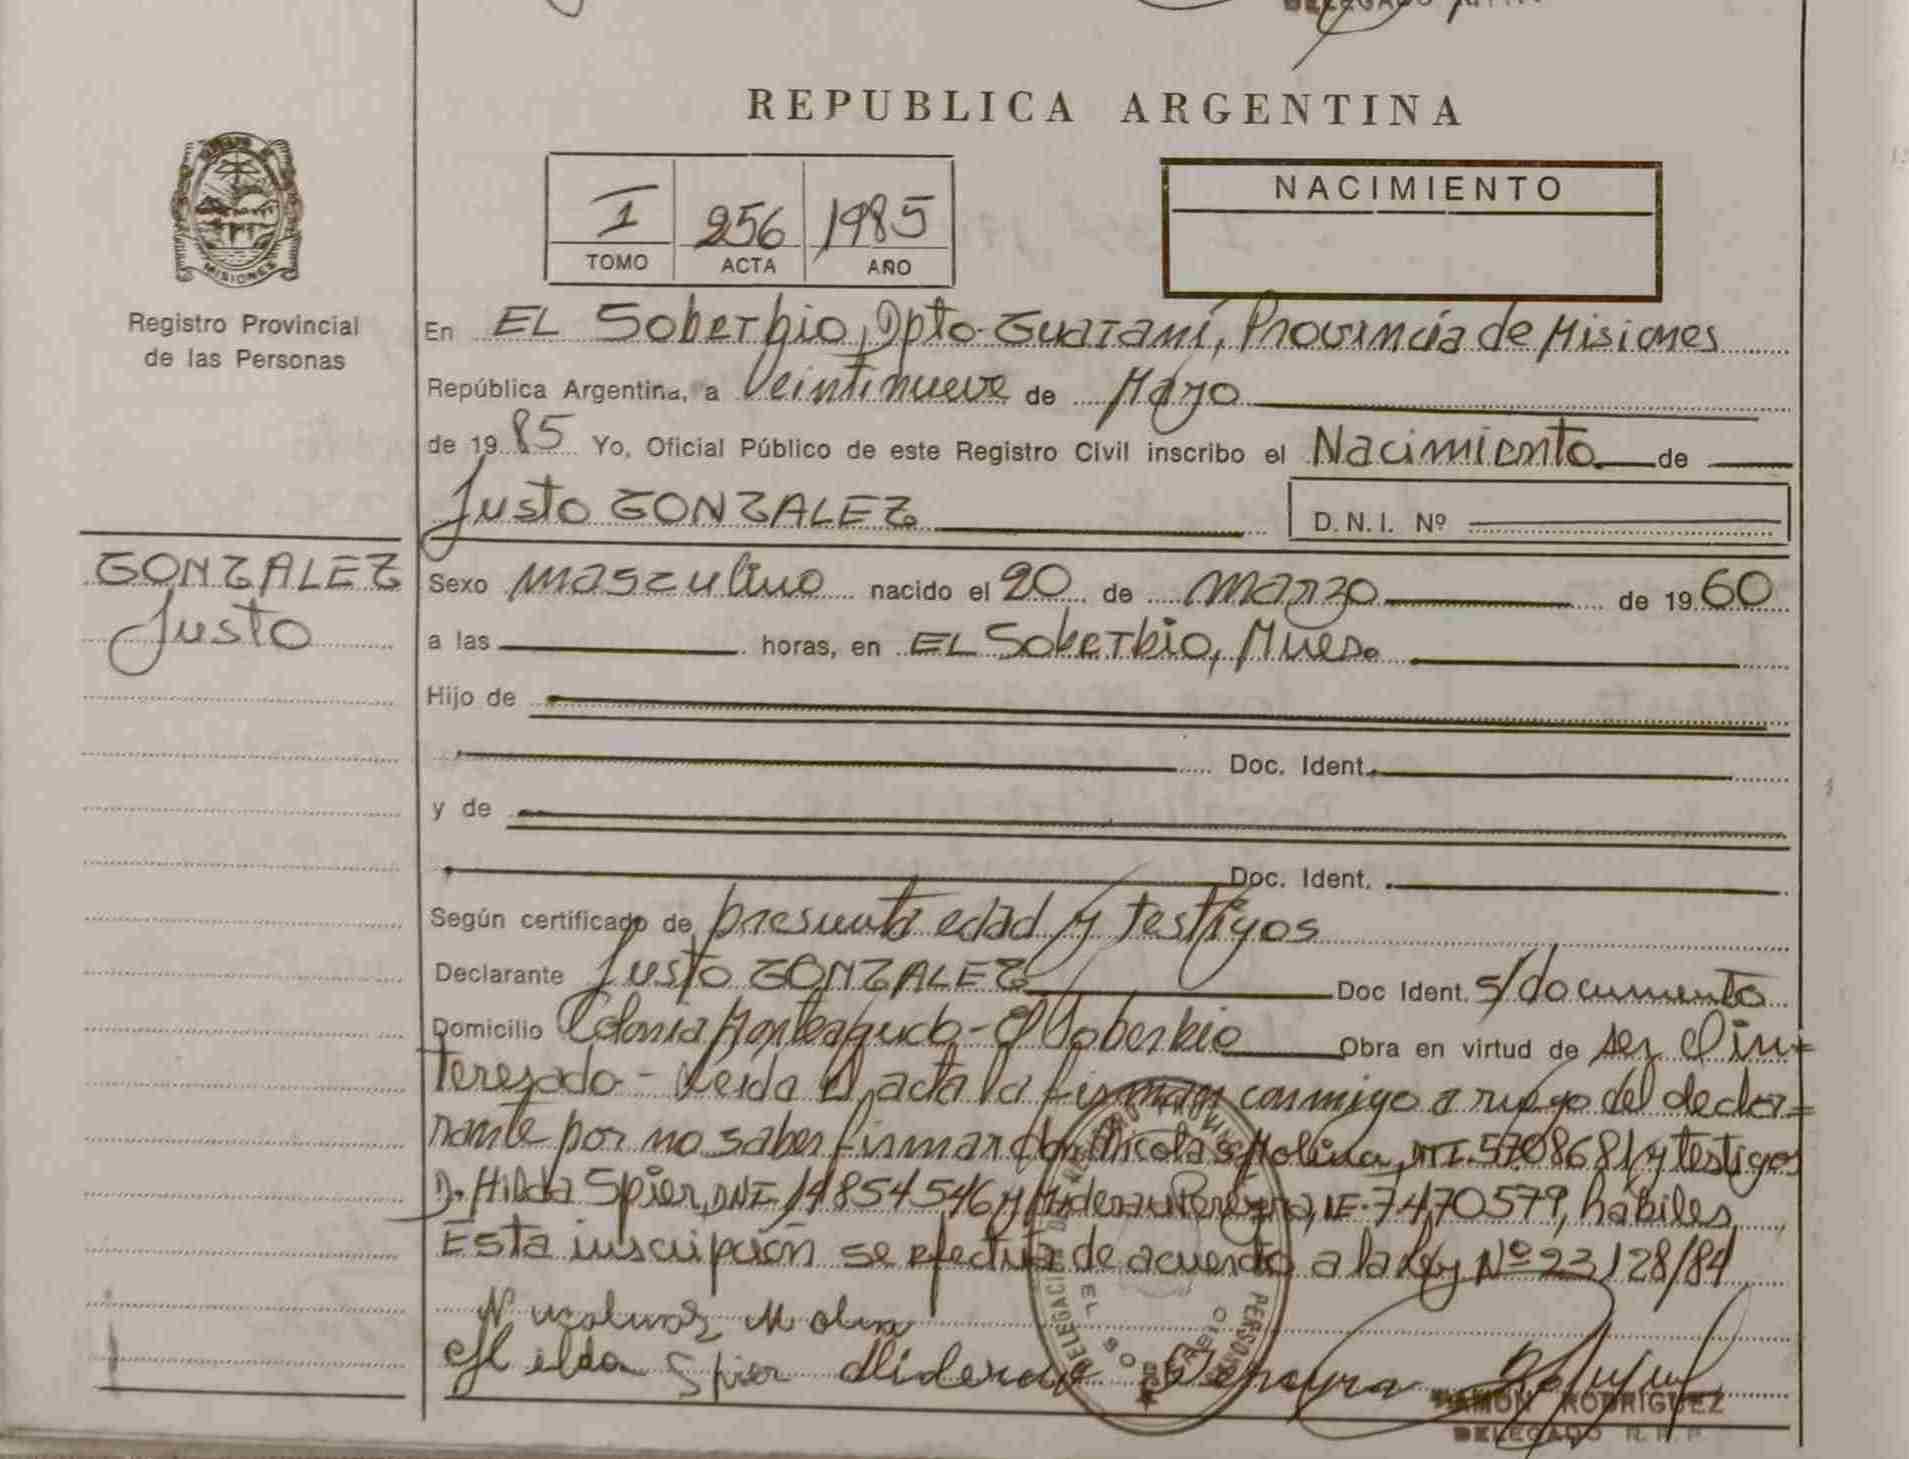 DELEGADO
REPUBLICA ARGENTINA
I 256 1985
TOMO ACTA AÑO
NACIMIENTO
MISIONES
Registro Provincial
de las Personas
En EL Soberbio, Dpto. Guaraní, Provincia de Misiones
República Argentina, a Veintinueve de Mayo
de 19 85 Yo, Oficial Público de este Registro Civil inscribo el Nacimiento de
Justo GONZALEZ
D.N.I. Nº
GONZALEZ
Justo
Sexo masculino nacido el 20 de marzo de 19 60
a las horas, en EL Soberbio, Mnes.
Hijo de
Doc. Ident.
y de
Doc. Ident.
Según certificado de presunta edad y testigos
Declarante Justo GONZALEZ Doc Ident. s/documento
Domicilio Colonia Monteagudo - El Soberbio Obra en virtud de ser el in=
teresado - Leida el acta la firman conmigo a ruego del decla=
rante por no saber firmar don Nicolas Molina, MI. 5708681 y testigos
D. Hilda Spier, DNI. 14854546 y Pereyra, LE. 7470579, hábiles
Esta inscripción se efectúa de acuerdo a la ley Nº 23128/84
Molina
Hilda Spier Pereyra
RAMON RODRIGUEZ
DELEGADO R.P.P.